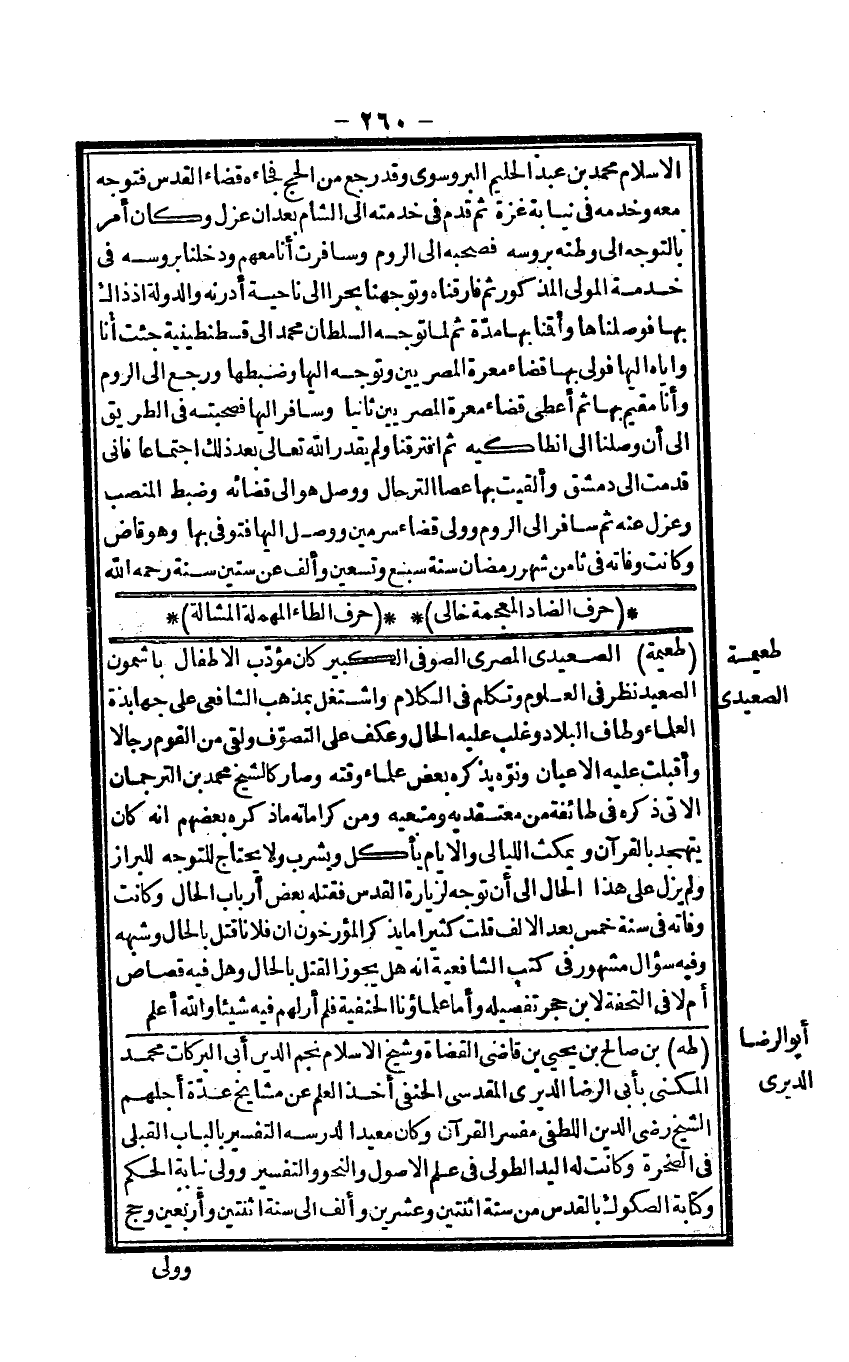 - ٢٦٠ -
الاسلام محمد بن عبد الحليم البروسوى وقد رجع من الحج فجاءه قضاء القدس فتوجه
معه وخدمه فى نيابة غزة ثم قدم فى خدمته الى الشام بعد ان عزل وكان أمر
بالتوجه الى وطنه بروسه فصحبه الى الروم وسافرت أنا معهم ودخلنا بروسه فى
خدمة المولى المذكور ثم فارقناه وتوجهنا بحرا الى ناحية أدرنه والدولة اذ ذاك
بها فوصلناها وأقنا بها مدّة ثم لما توجه السلطان محمد الى قسطنطينية جئت أنا
واياه اليها فولى بها قضاء معرة المصريين وتوجه اليها وضبطها ورجع الى الروم
وأنا مقيم بها ثم أعطى قضاء معرة المصريين ثانيا وسافر اليها فصحبته فى الطريق
الى أن وصلنا الى انطاكيه ثم افترقنا ولم يقدر الله تعالى بعد ذلك اجتماعا فانى
قدمت الى دمشق وألقيت بها عصا الترحال ووصل هو الى قضائه وضبط المنصب
وعزل عنه ثم سافر الى الروم وولى قضاء سرمين ووصل اليها فتوفى بها وهو قاض
وكانت وفاته فى ثامن شهر رمضان سنة سبع وتسعين وألف عن ستين سنة رحمه الله
*(حرف الضاد المعجمة خالى)* *(حرف الطاء المهملة المشالة)*
(طعيمة) الصعيدى المصرى الصوفى الكبير كان مؤدّب الاطفال باشمون
طعيمة
الصعيد نظر فى العلوم وتكلم فى الكلام واشتغل بمذهب الشافعى على جهابذة
الصعيدى
العلماء وطاف البلاد وغلب عليه الحال وعكف على التصوّف ولقى من القوم رجالا
وأقبلت عليه الاعيان ونوّه بذكره بعض علماء وقته وصار كالشيخ محمد بن الترجمان
الاتى ذكره فى طائفة من معتقديه ومتبعيه ومن كراماته ماذكره بعضهم انه كان
يتهجد بالقرآن ويمكث الليالى والايام يأكل ويشرب ولا يحتاج للتوجه للبراز
ولم يزل على هذا الحال الى أن توجه لزيارة القدس فقتله بعض أرباب الحال وكانت
وفاته فى سنة خمس بعد الالف قلت كثيرا ما يذكر المؤرخون ان فلانا قتل بالحال وشبهه
وفيه سؤال مشهور فى كتب الشافعية انه هل يجوز القتل بالحال وهل فيه قصاص
أم لا فى التحفة لابن حجر تفصيله وأما علماؤنا الحنفية فلم أر لهم فيه شيئا والله أعلم
(طه) بن صالح بن يحيى بن قاضى القضاة وشيخ الاسلام نجم الدين أبى البركات محمد
أبو الرضا
المكنى بأبى الرضا الديرى المقدسى الحنفى أخذ العلم عن مشايخ عدّة أجلهم
الديرى
الشيخ رضى الدين اللطفى مفسر القرآن وكان معيدا لدرسه التفسير بالباب القبلى
فى الصخرة وكانت له اليد الطولى فى علم الاصول والنحو والتفسير وولى نيابة الحكم
وكتابة الصكوك بالقدس من سنة اثنتين وعشرين وألف الى سنة اثنتين وأربعين وحج
وولى